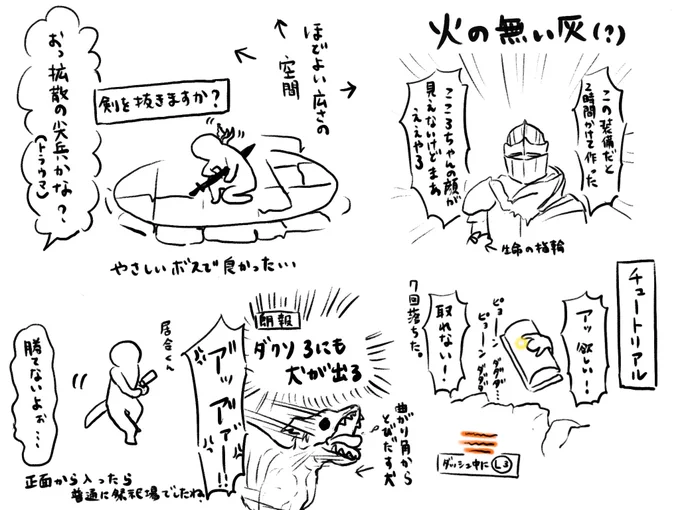 火の無い灰(?)
この装備だと
2時間かけて作った
こころちゃんの顔が
見えないけどまあ
ええやろ
生命の指輪
ほどよい広さの
空間
剣を抜きますか?
おっ拡散の尖兵かな?
(トラウマ)
やさしいボスで良かった…
チュートリアル
アッ欲しい!
ピョーン
ピョーン
ダダダ…
ダダダ…
取れない!
7回落ちた。
ダッシュ中にL3
朗報
ダクソ3にも
犬が出る
曲がり角から
とびだす犬
アッアァー!!
居合くん
勝てないよぉ…
正面から入ったら
普通に祭祀場でしたね